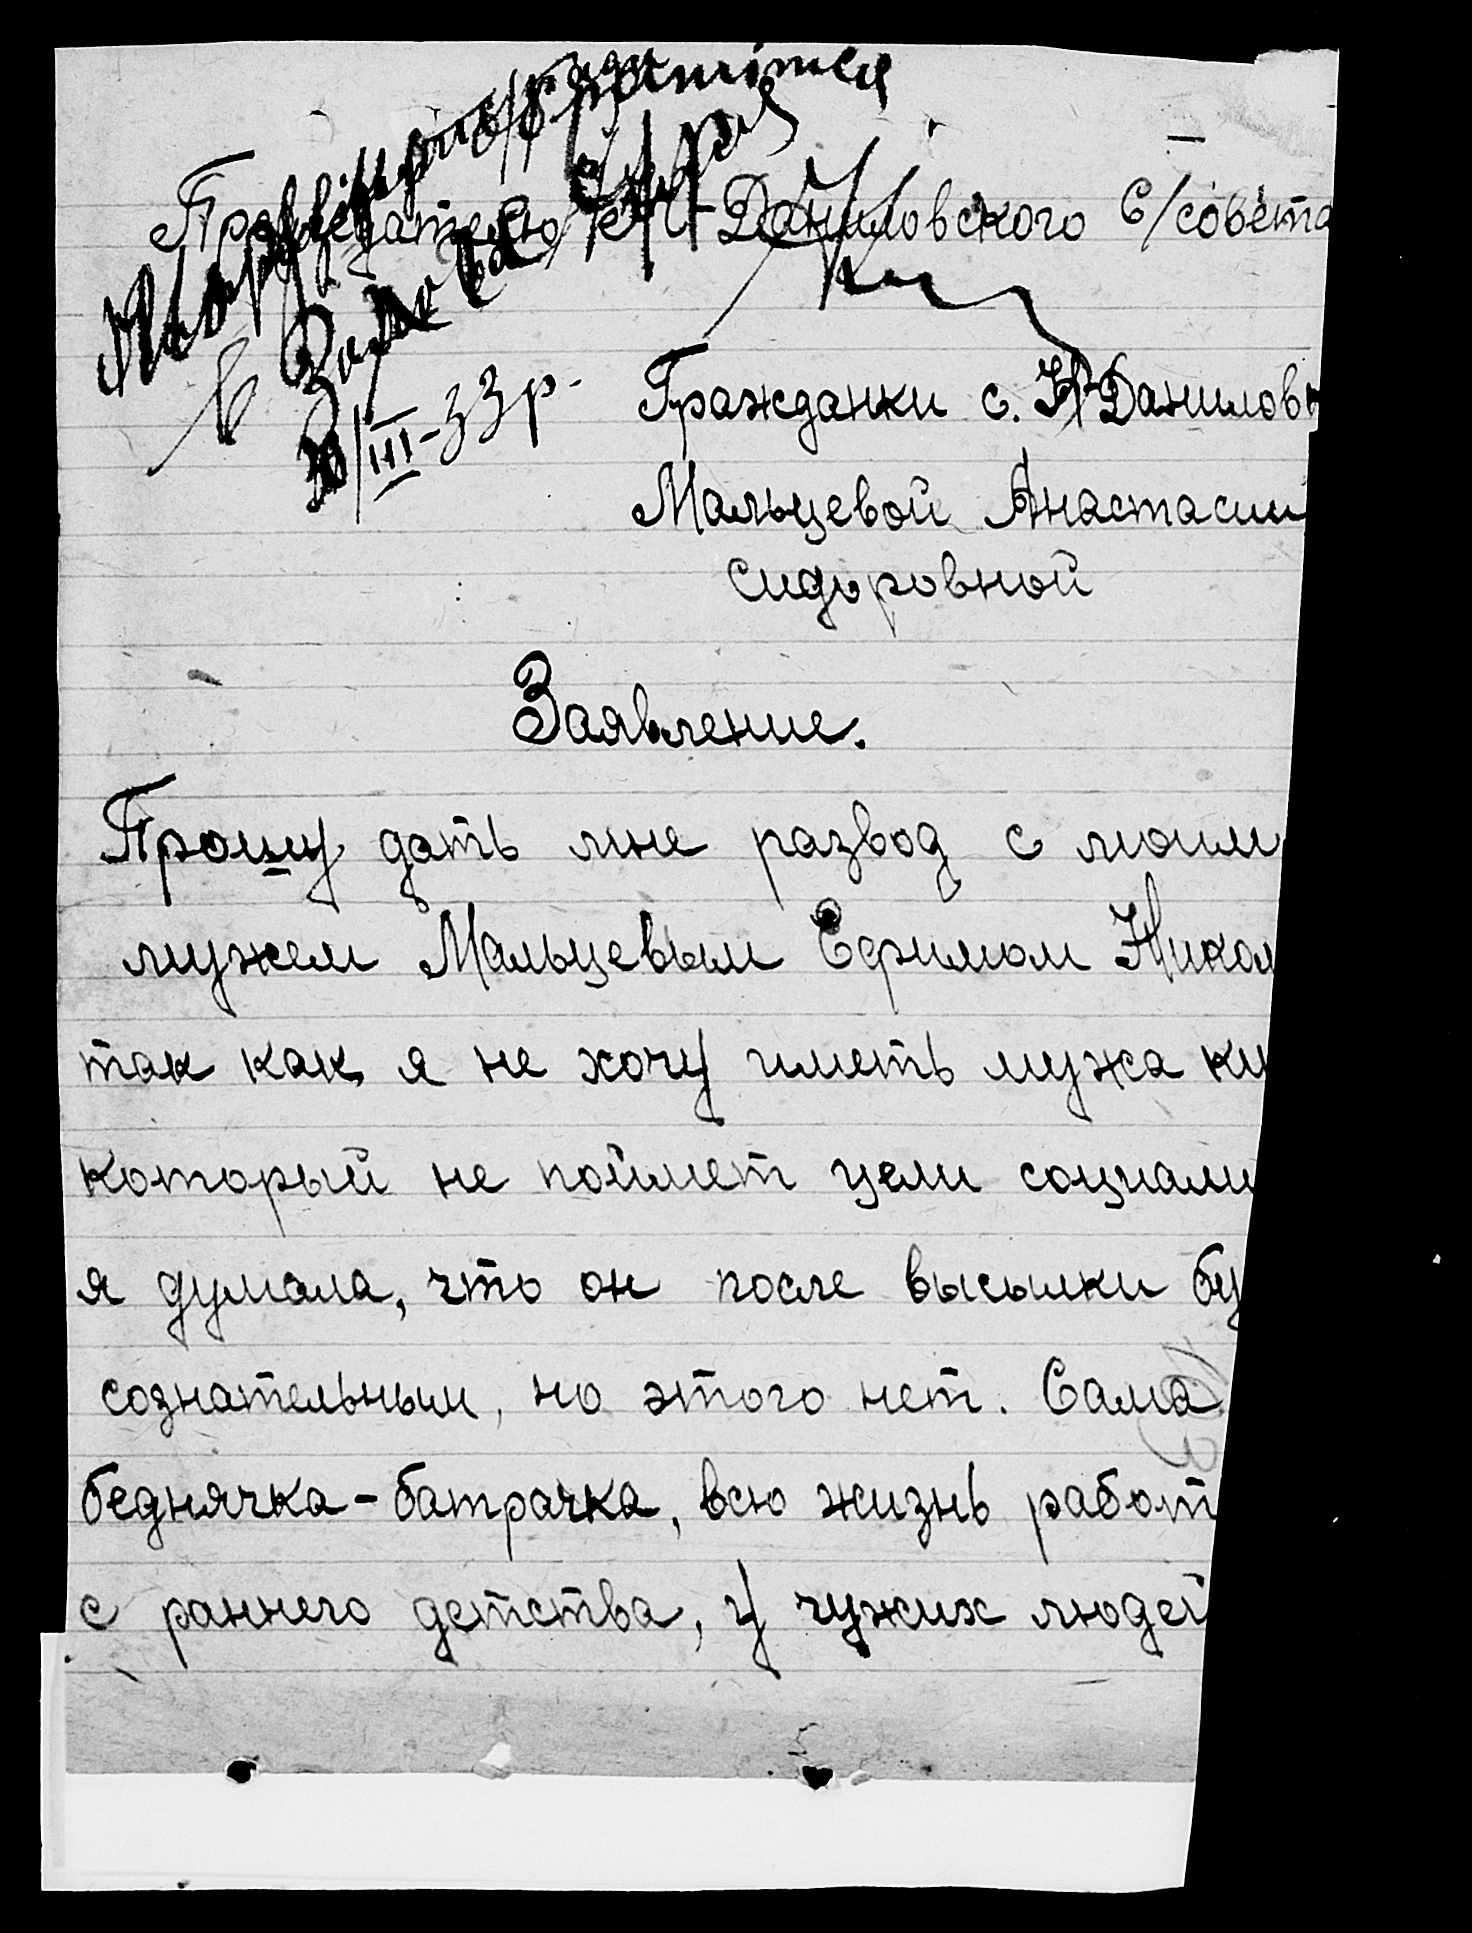 Председателю Н-Даниловского С/совета
Гражданки с. Н-Даниловк
33р.
Мальцевой Анастасии
Сидоровной
Заявление.
Прошу дать мне развод с моим
мужем Мальцевым Ефимом Никол
так как я не хочу иметь мужа ку
который не поймет цели социали
я думала, что он после высылки бу
сознательным, но этого нет. Сама
беднячка-батрачка, всю жизнь работ
с раннего детства, у чужих людей